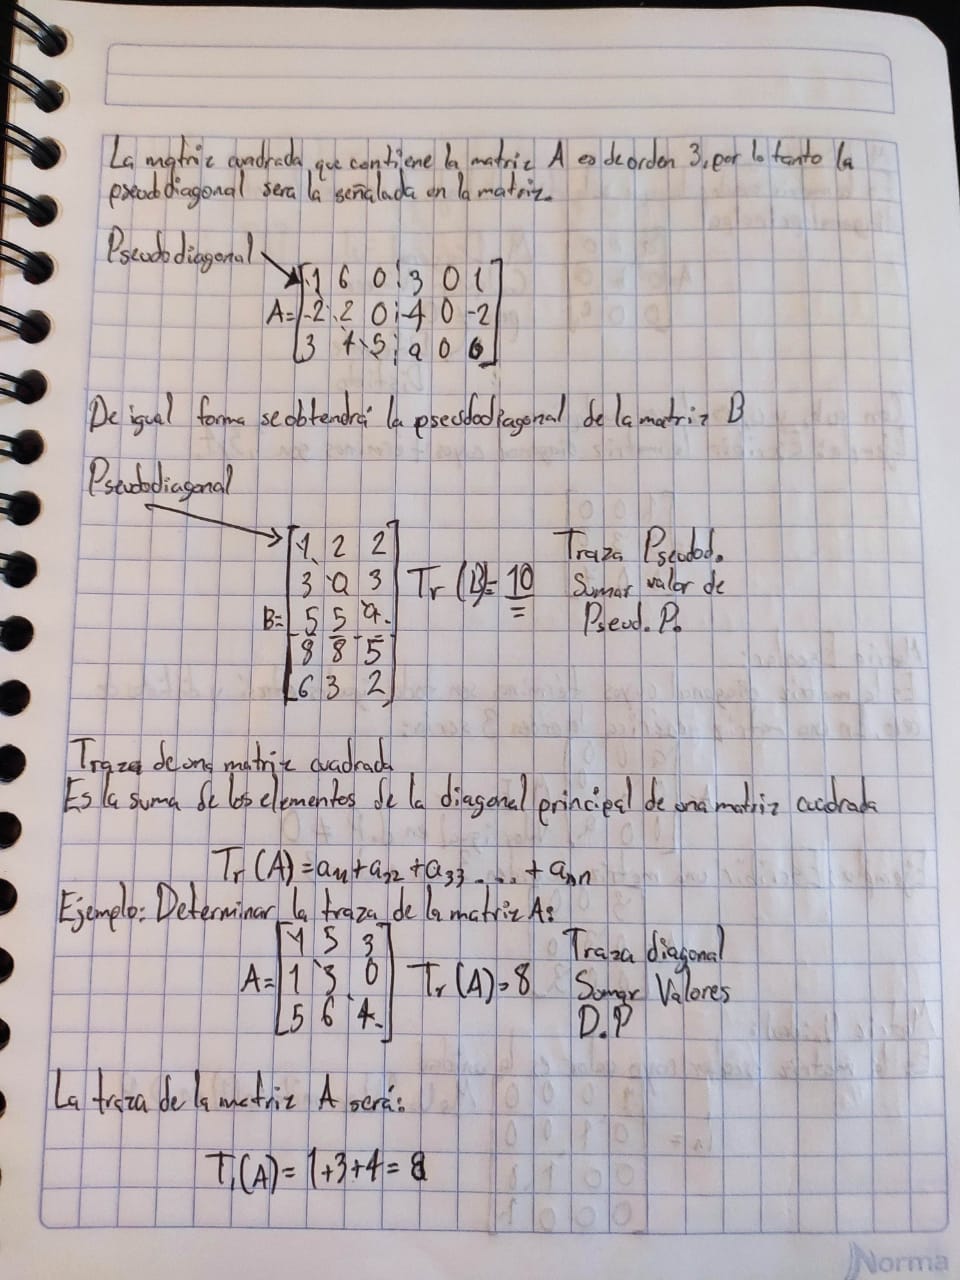 La matriz cuadrada que contiene la matriz A es de orden 3, por lo tanto la
pseudodiagonal sera la señalada en la matriz.
Pseudodiagonal
1 6 0 3 0 1
A= -2 2 0 -4 0 -2
3 7 5 9 0 6
De igual forma se obtendrá la pseudodiagonal de la matriz B
Pseudodiagonal
1 2 2
3 0 3
B= 5 5 9
8 8 5
6 3 2
Tr (B)= 10
Traza Pseudod.
Sumar valor de
Pseud. P.
Traza de una matriz cuadrada
Es la suma de los elementos de la diagonal principal de una matriz cuadrada
Tr (A) = a11 + a22 + a33 .... + ann
Ejemplo: Determinar la traza de la matriz A:
1 5 3
A= 1 3 0
5 6 4
Tr (A) = 8
Traza diagonal
Sumar Valores
D.P
La traza de la matriz A será:
Tr(A) = 1+3+4 = 8
Norma